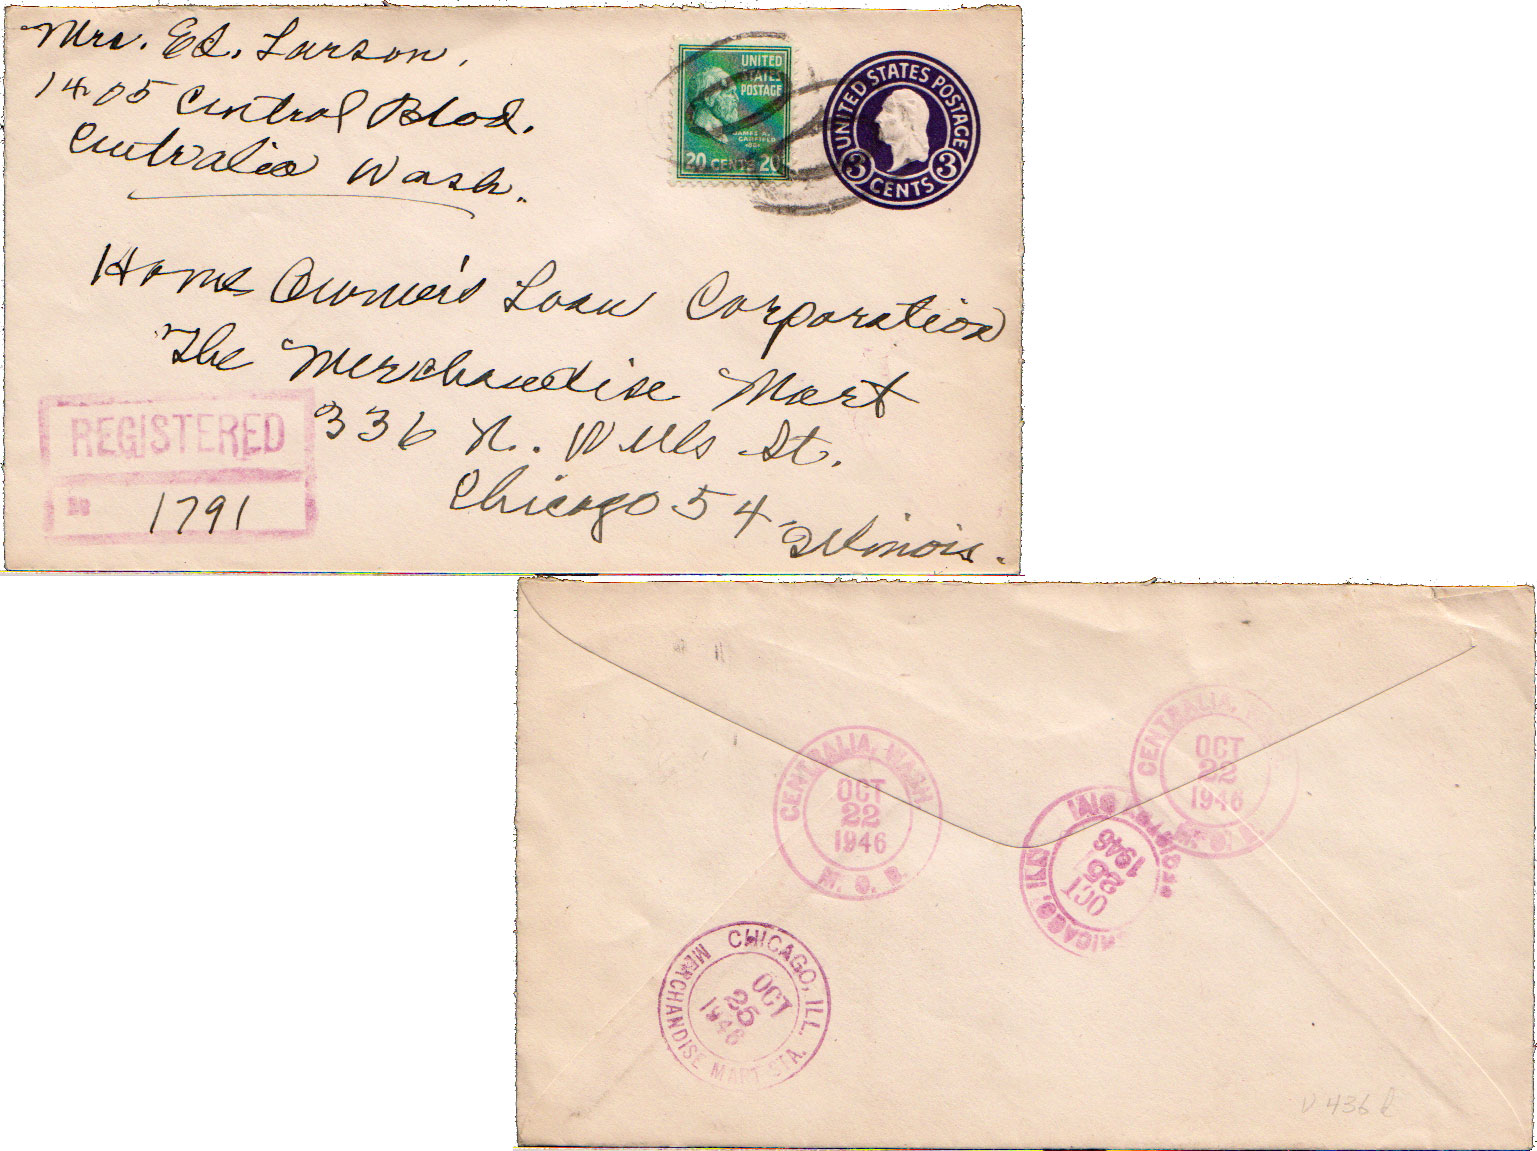 Mrs. Ed. Larson.
1405 Central Blvd.
Centralia Wash.
UNITED
STATES
POSTAGE
JAMES A.
GARFIELD
20 CENTS 20
UNITED STATES POSTAGE
3 CENTS 3
Home Owner's Loan Corporation
The Merchandise Mart
336 N. Wells St.
Chicago 54
Illinois.
REGISTERED
No
1791
CENTRALIA, WASH
OCT
22
1946
M. O. B.
CENTRALIA,
OCT
22
1946
CHICAGO, ILL
OCT
25
1946
CHICAGO, ILL.
OCT
25
1946
MERCHANDISE MART STA.